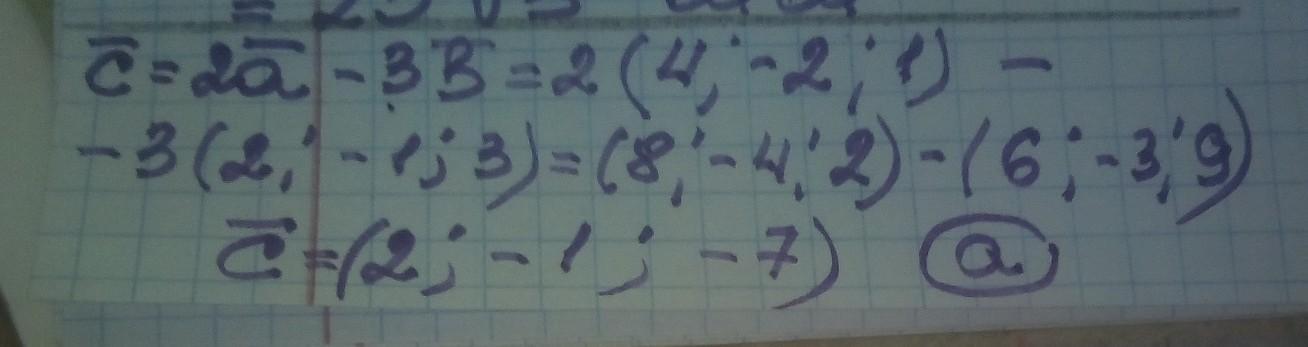 c̅ = 2a̅ - 3B̅ = 2(4; -2; 1) -
- 3(2; -1; 3) = (8; -4; 2) - (6; -3; 9)
c̅ = (2; -1; -7) a